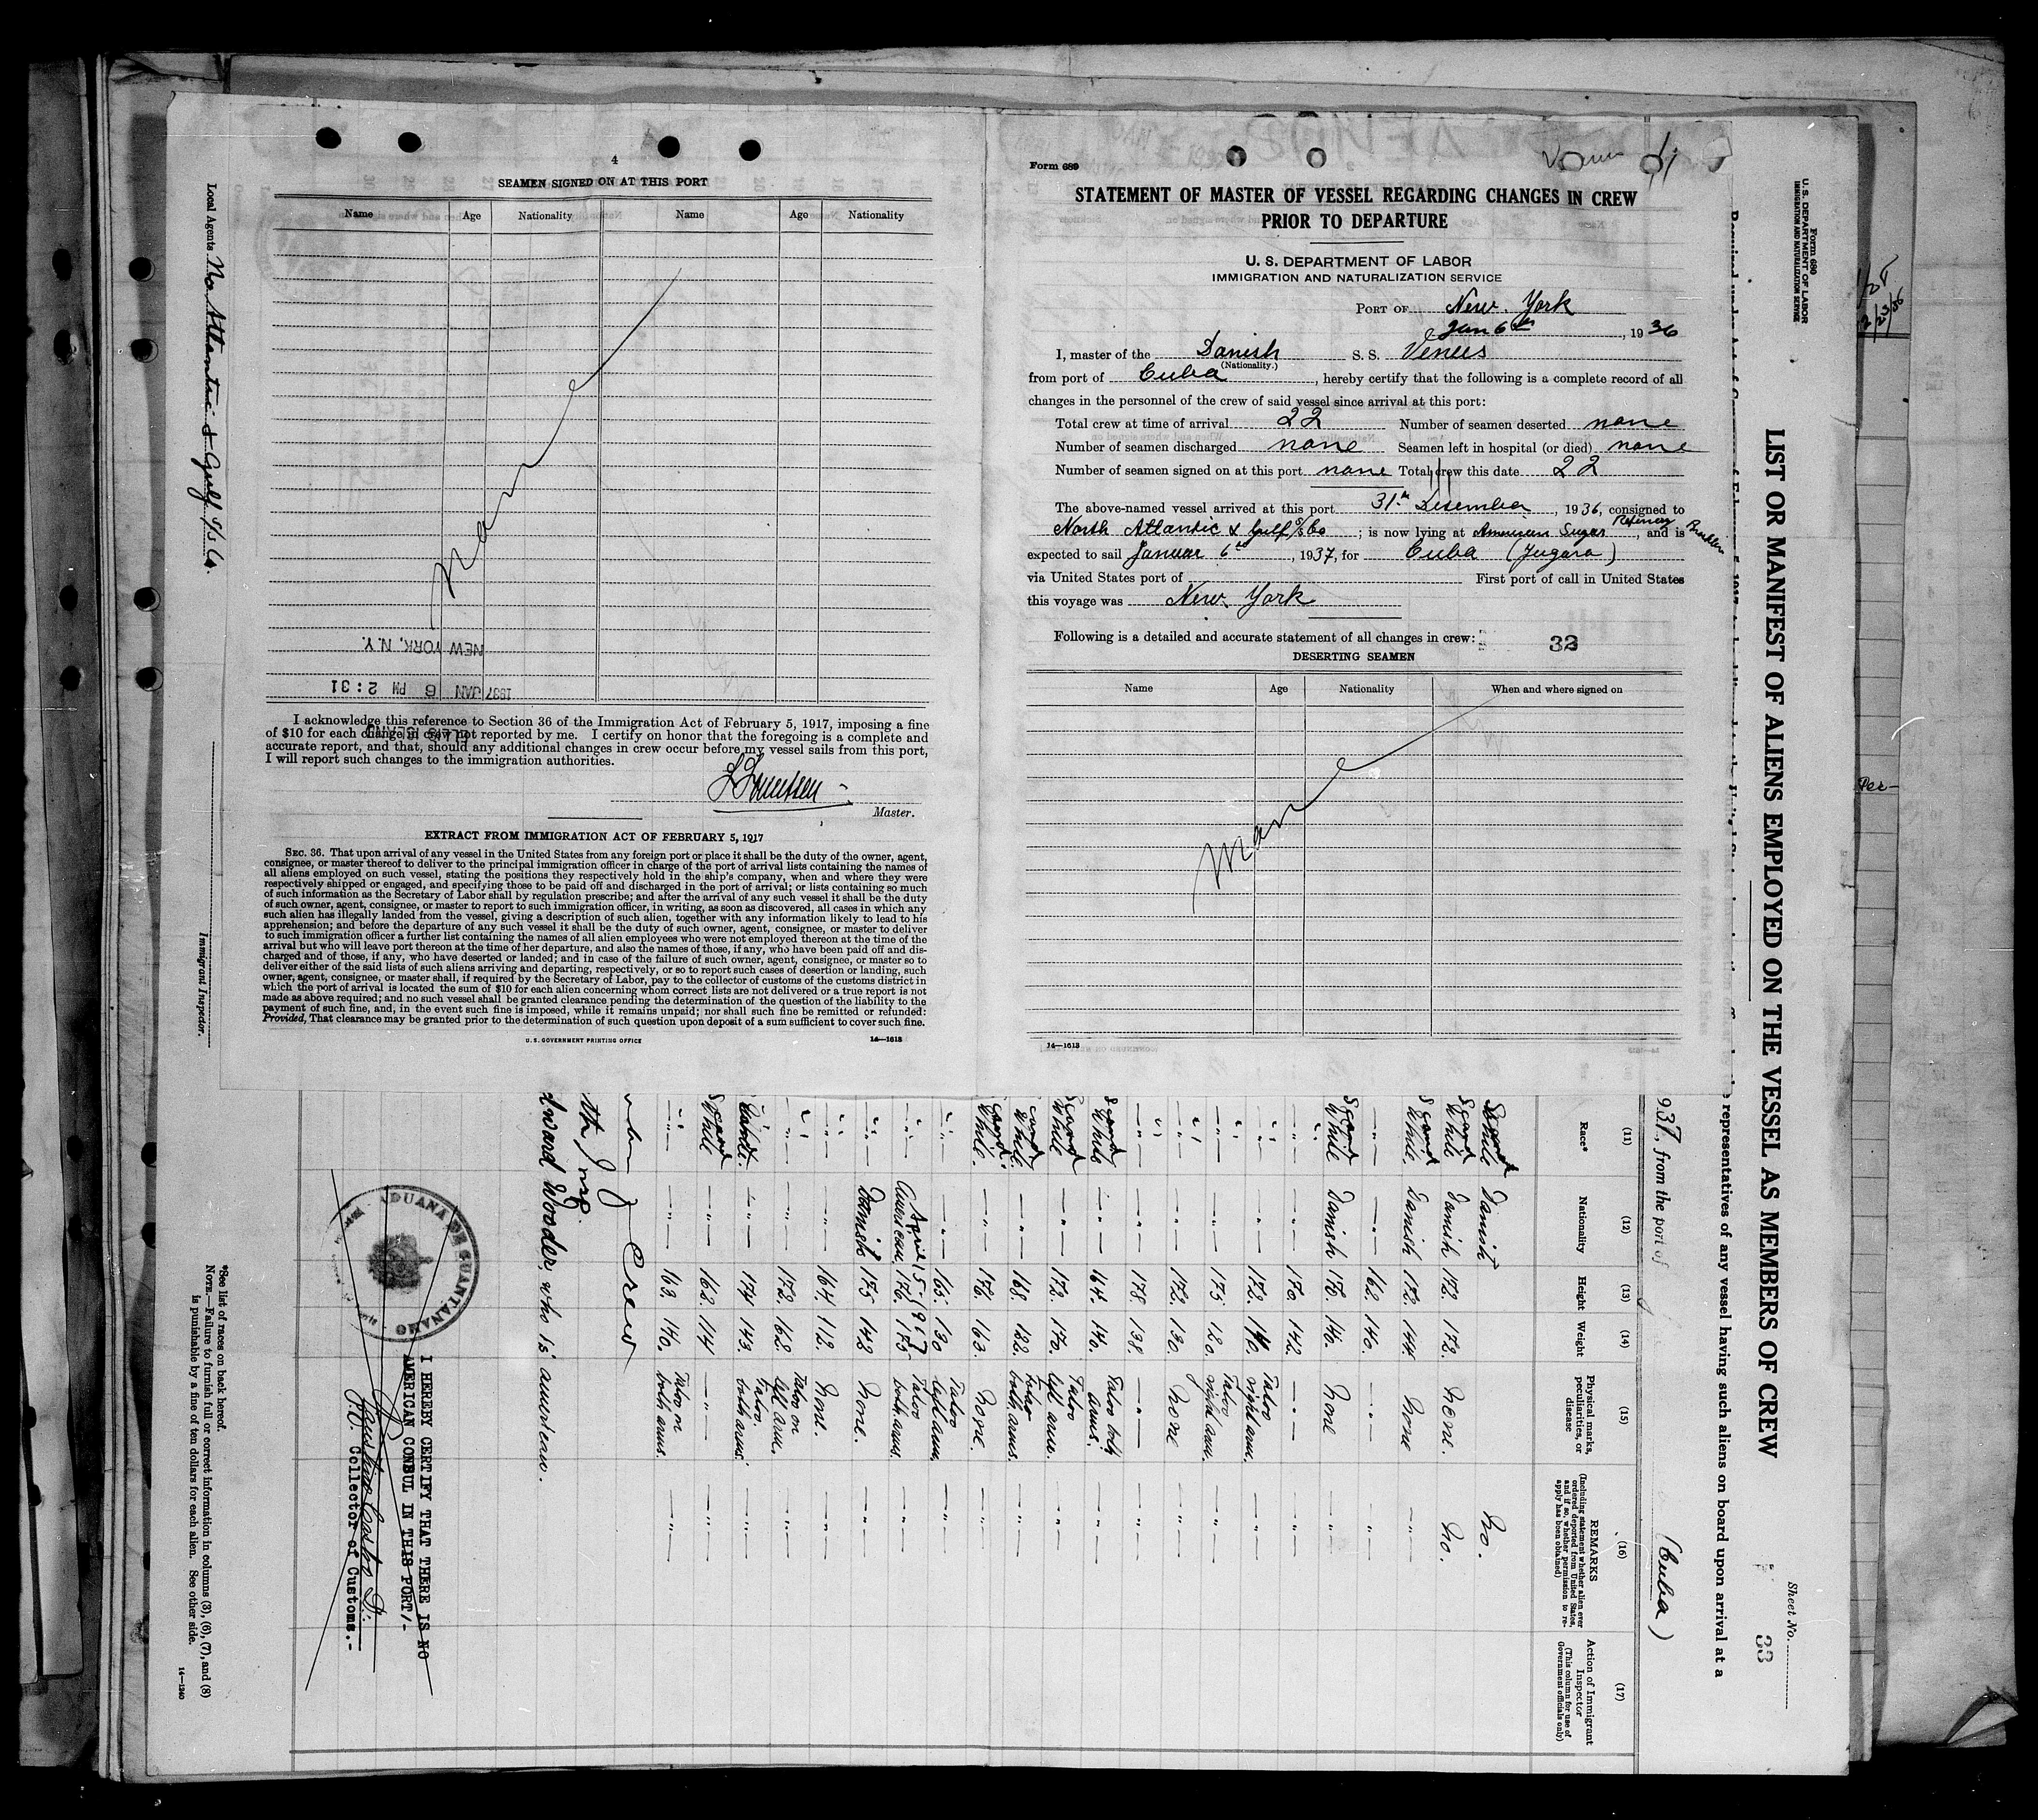 4
SEAMEN SIGNED ON AT THIS PORT
Name Age Nationality Name Age Nationality
None
NEW YORK, N.Y.
1937 JAN 6 PM 2:31
I acknowledge this reference to Section 36 of the Immigration Act of February 5, 1917, imposing a fine
of $10 for each change in crew not reported by me. I certify on honor that the foregoing is a complete and
accurate report, and that, should any additional changes in crew occur before my vessel sails from this port,
I will report such changes to the immigration authorities.
Master.
EXTRACT FROM IMMIGRATION ACT OF FEBRUARY 5, 1917
SEC. 36. That upon arrival of any vessel in the United States from any foreign port or place it shall be the duty of the owner, agent,
consignee, or master thereof to deliver to the principal immigration officer in charge of the port of arrival lists containing the names of
all aliens employed on such vessel, stating the positions they respectively hold in the ship's company, when and where they were
respectively shipped or engaged, and specifying those to be paid off and discharged in the port of arrival; or lists containing so much
of such information as the Secretary of Labor shall by regulation prescribe; and after the arrival of any such vessel it shall be the duty
of such owner, agent, consignee, or master to report to such immigration officer, in writing, as soon as discovered, all cases in which any
such alien has illegally landed from the vessel, giving a description of such alien, together with any information likely to lead to his
apprehension; and before the departure of any such vessel it shall be the duty of such owner, agent, consignee, or master to deliver
to such immigration officer a further list containing the names of all alien employees who were not employed thereon at the time of the
arrival but who will leave port thereon at the time of her departure, and also the names of those, if any, who have been paid off and dis-
charged and of those, if any, who have deserted or landed; and in case of the failure of such owner, agent, consignee, or master so to
deliver either of the said lists of such aliens arriving and departing, respectively, or so to report such cases of desertion or landing, such
owner, agent, consignee, or master shall, if required by the Secretary of Labor, pay to the collector of customs of the customs district in
which the port of arrival is located the sum of $10 for each alien concerning whom correct lists are not delivered or a true report is not
made as above required; and no such vessel shall be granted clearance pending the determination of the question of the liability to the
payment of such fine, and, in the event such fine is imposed, while it remains unpaid; nor shall such fine be remitted or refunded:
Provided, That clearance may be granted prior to the determination of such question upon deposit of a sum sufficient to cover such fine.
U. S. GOVERNMENT PRINTING OFFICE 14—1613
Form 689
STATEMENT OF MASTER OF VESSEL REGARDING CHANGES IN CREW
PRIOR TO DEPARTURE
U. S. DEPARTMENT OF LABOR
IMMIGRATION AND NATURALIZATION SERVICE
PORT OF New York
Jan 6th, 1936
I, master of the Danish S. S. Venus
(Nationality.)
from port of Cuba, hereby certify that the following is a complete record of all
changes in the personnel of the crew of said vessel since arrival at this port:
Total crew at time of arrival 22 Number of seamen deserted none
Number of seamen discharged none Seamen left in hospital (or died) none
Number of seamen signed on at this port none Total crew this date 22
The above-named vessel arrived at this port 31th Desember, 1936, consigned to
North Atlantic & Gulf S/S Co; is now lying at American Sugar Refinery Brooklyn, and is
expected to sail Januar 6th, 1937, for Cuba (Jugara)
via United States port of First port of call in United States
this voyage was New York
Following is a detailed and accurate statement of all changes in crew: 33
DESERTING SEAMEN
Name Age Nationality When and where signed on
None
14—1613
Form 680
U. S. DEPARTMENT OF LABOR
IMMIGRATION AND NATURALIZATION SERVICE
LIST OR MANIFEST OF ALIENS EMPLOYED ON THE VESSEL AS MEMBERS OF CREW
Sheet No.
33
representatives of any vessel having such aliens on board upon arrival at a
937, from the port of (Cuba)
(11) (12) (13) (14) (15) (16) (17)
Race* Nationality Height Weight Physical marks, peculiarities, or disease
REMARKS
(Including statement whether alien ever ordered deported from United States, and if so, whether permission to re-apply has been obtained)
Action of Immigrant Inspector
(This column for use of Government officials only)
White Danish No.
White Danish 172. None. No.
White Danish 172. 144 None —"—
—"— 162. 140. —"— —"—
White Danish 170. 140. None —"—
—"— —"— 170. 142. —"— —"—
—"— —"— 172. 140. Tatoo right arm. —"—
—"— —"— 175. 120. Tatoo right arm. —"—
—"— —"— 172. 130. None —"—
—"— —"— 178. 138. —"— —"—
White —"— 164. 140. Tatoo both arms. —"—
White —"— 172. 170. Tatoo left arm. —"—
White —"— 168. 122. Tatoo both arms. —"—
White. —"— 176. 163. None. —"—
—"— —"— 165. 130 Tatoo left arm. —"—
April 15-1967
—"— American 176. 175 Tatoo both arms. —"—
—"— Danish 175 142 None. —"—
—"— —"— 164 112. None. —"—
—"— —"— 172. 162. Tatoo on left arm. —"—
White. —"— 174 143. Tatoo both arms. —"—
White —"— 162. 114 —"— —"—
—"— —"— 163. 140. Tatoo on both arms. —"—
Crew
Insp.
dward Wooder, who is american.
ADUANA DE GUANTANAMO
I HEREBY CERTIFY THAT THERE IS NO
AMERICAN CONSUL IN THIS PORT/-
Collector of Customs.-
*See list of races on back hereof.
NOTE.—Failure to furnish full or correct information in columns (3), (6), (7), and (8)
is punishable by a fine of ten dollars for each alien. See other side.
14—1240
Local Agents No. Atlantic & Gulf S/S Co.
Immigrant Inspector.